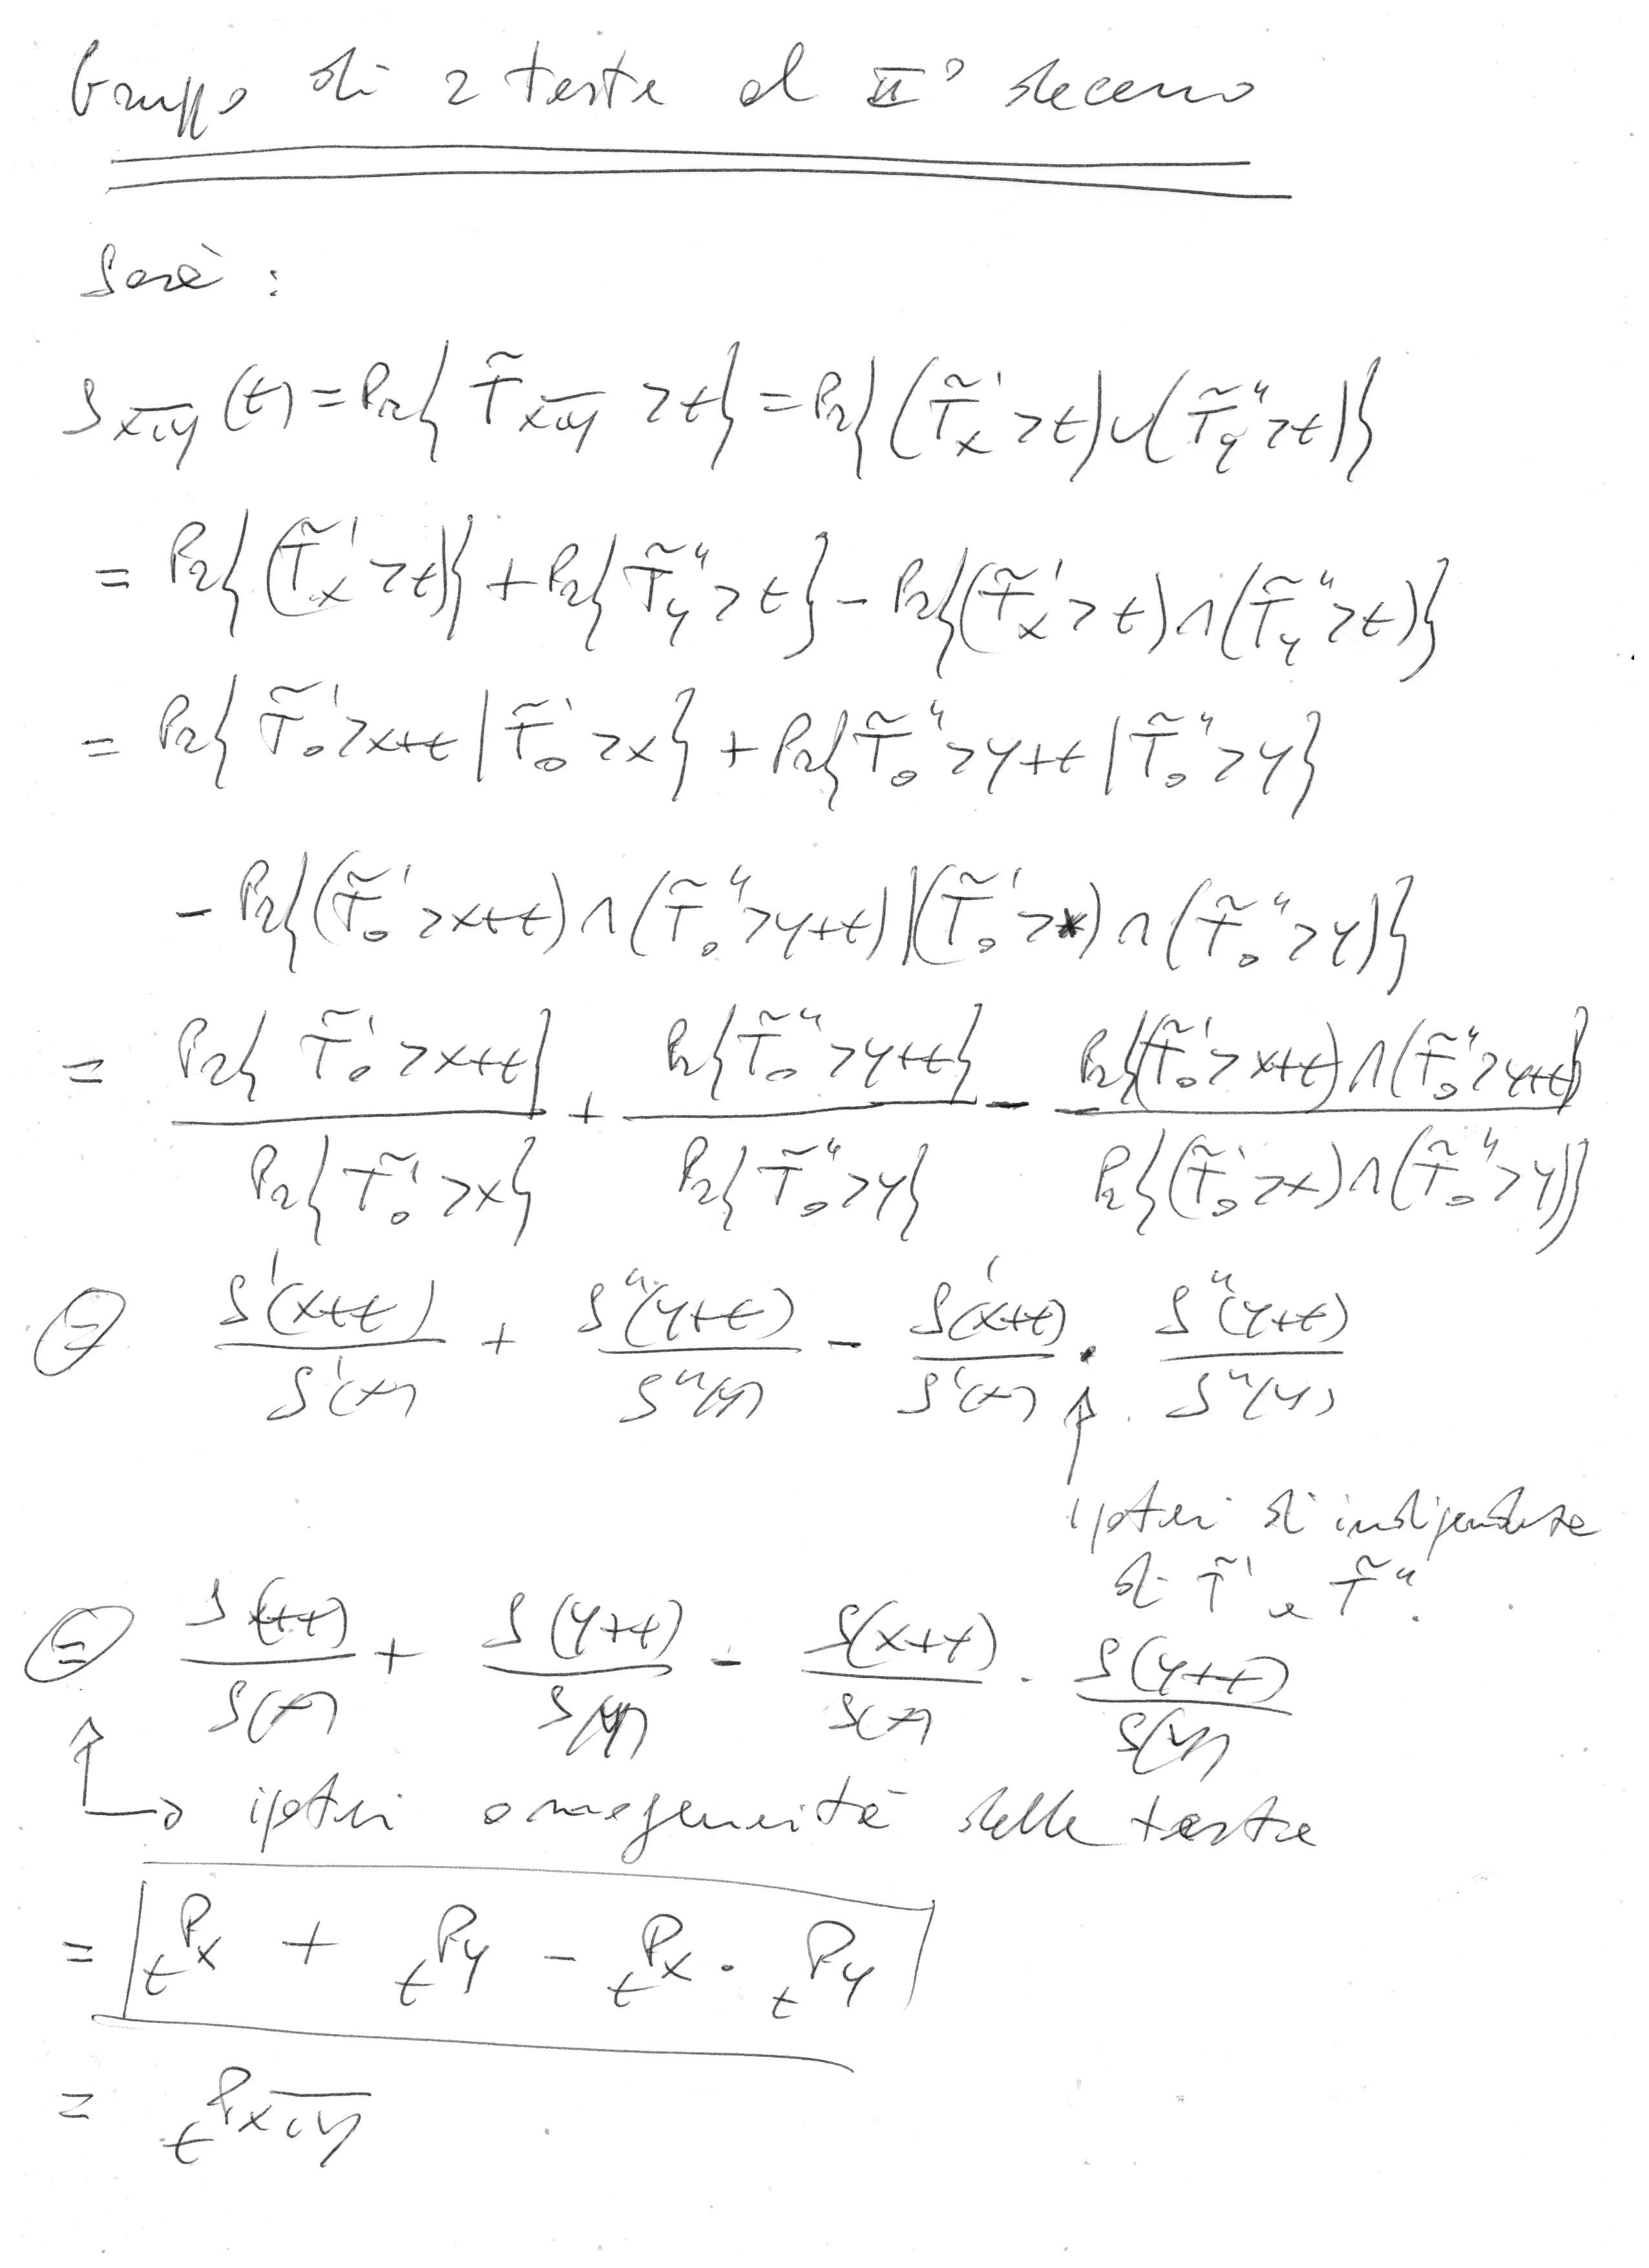 Gruppo di 2 teste al II° decesso
Sarà :
S_{\overline{x,y}}(t) = Pr{ T̃_{\overline{x,y}} > t } = Pr{ (T̃'_x > t) ∪ (T̃''_y > t) }
= Pr{ (T̃'_x > t) } + Pr{ T̃''_y > t } - Pr{ (T̃'_x > t) ∩ (T̃''_y > t) }
= Pr{ T̃'_0 > x+t | T̃'_0 > x } + Pr{ T̃''_0 > y+t | T̃''_0 > y }
- Pr{ (T̃'_0 > x+t) ∩ (T̃''_0 > y+t) | (T̃'_0 > x) ∩ (T̃''_0 > y) }
= Pr{ T̃'_0 > x+t } / Pr{ T̃'_0 > x } + Pr{ T̃''_0 > y+t } / Pr{ T̃''_0 > y } - Pr{ (T̃'_0 > x+t) ∩ (T̃''_0 > y+t) } / Pr{ (T̃'_0 > x) ∩ (T̃''_0 > y) }
= S'(x+t) / S'(x) + S''(y+t) / S''(y) - S'(x+t) / S'(x) · S''(y+t) / S''(y)
↑
ipotesi di indipendenza
di T̃' e T̃''.
= S(x+t) / S(x) + S(y+t) / S(y) - S(x+t) / S(x) · S(y+t) / S(y)
↑→ ipotesi omogeneità delle teste
= tPx + tPy - tPx · tPy
= tP_{\overline{x,y}}